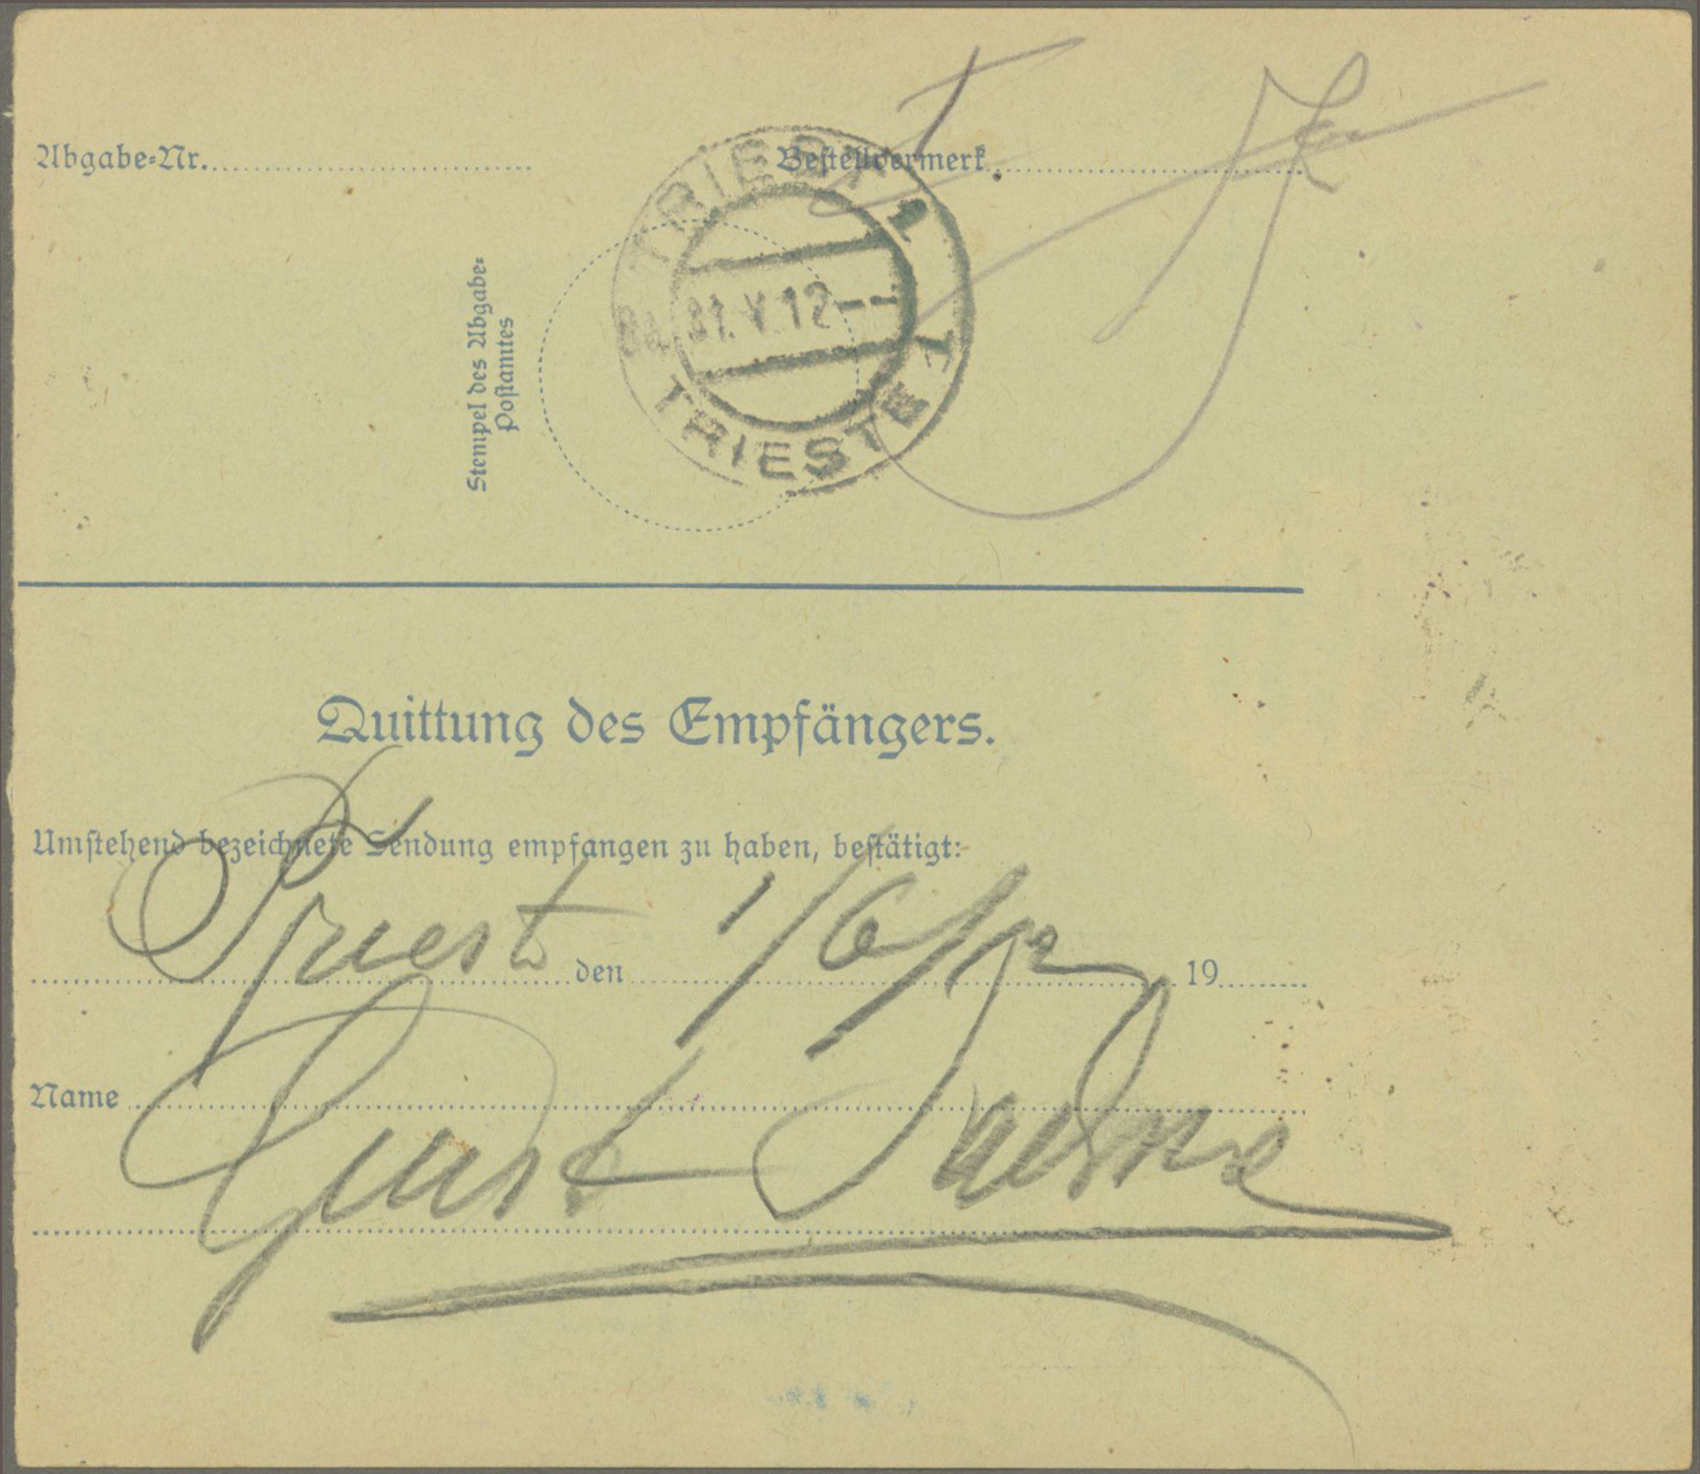 Abgabe-Nr. Bestellvermerk
TRIEST 1
8a 31.V.12
TRIESTE 1
Stempel des Abgabe-
Postamtes
Quittung des Empfängers.
Umstehend bezeichnete Sendung empfangen zu haben, bestätigt:
Triest den 1/6/12 19
Name
Gust